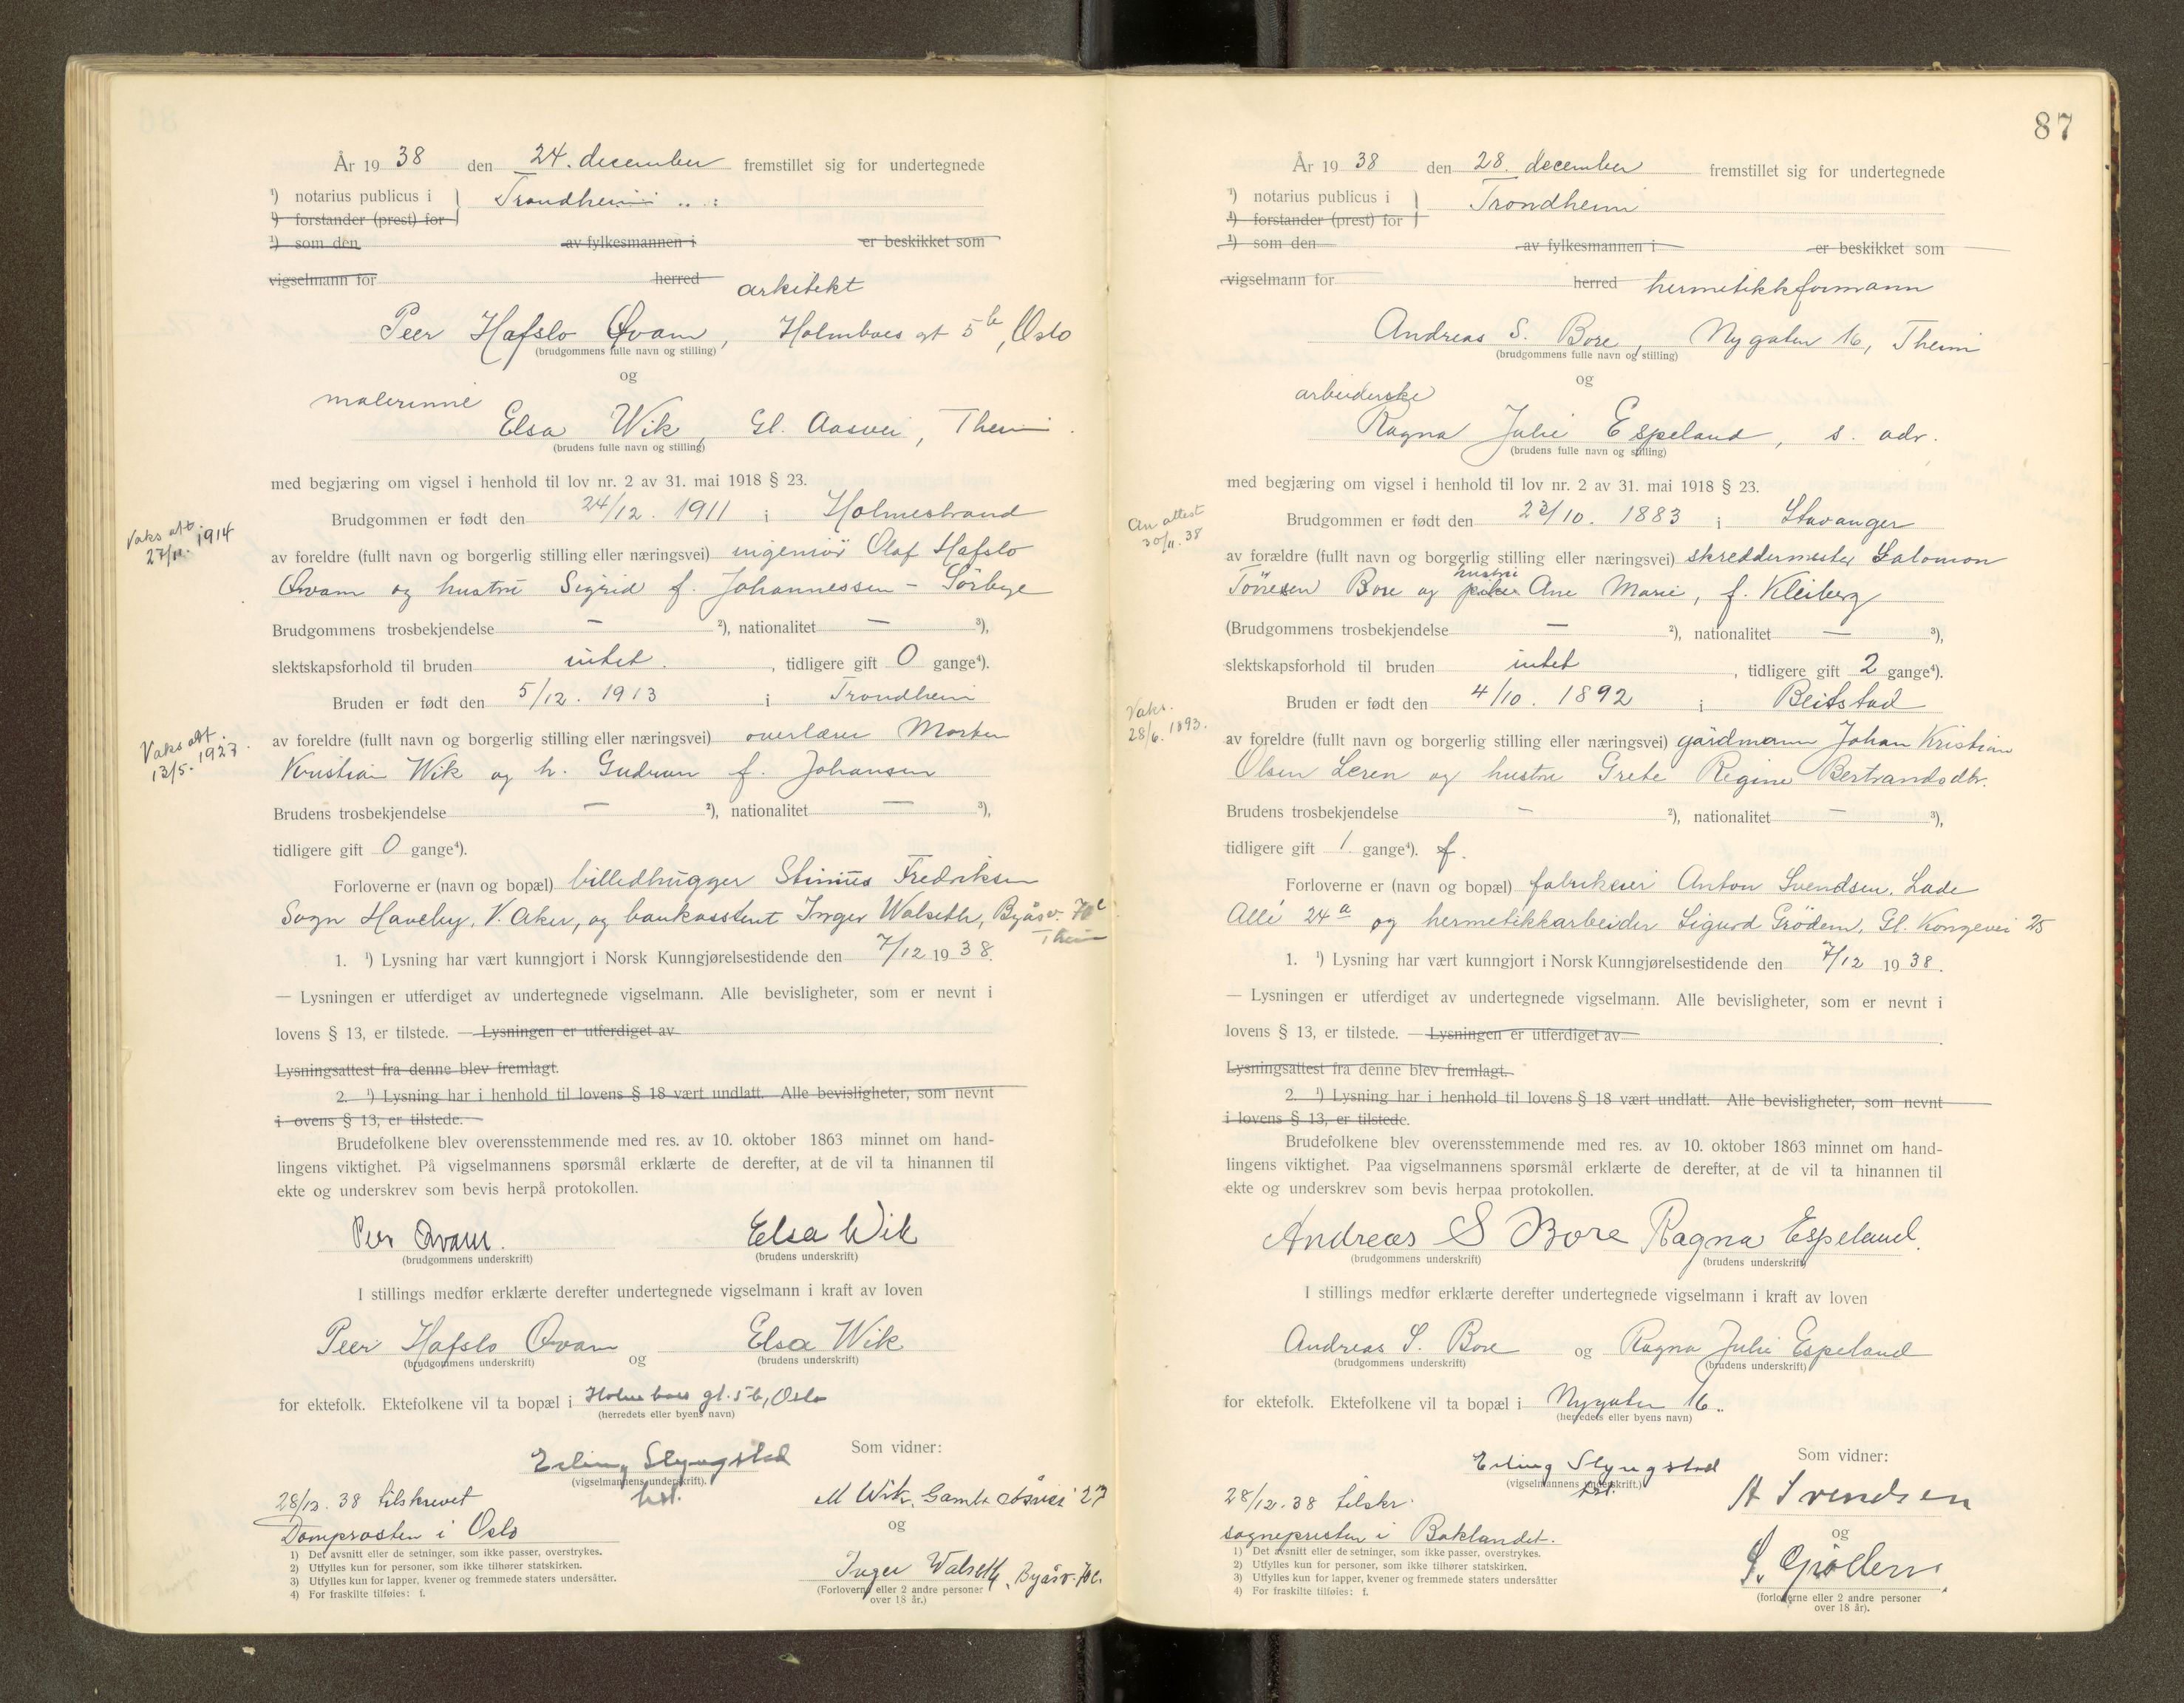 År 1938 den 24. december fremstillet sig for undertegnede
¹) notarius publicus i } Trondheim
¹) forstander (prest) for
¹) som den av fylkesmannen i er beskikket som
vigselmann for herred arkitekt
Peer Hafslo Qvam, Holmboes gt 5b, Oslo
(brudgommens fulle navn og stilling)
og
malerinne
Elsa Wik, Gl. Aasvei, Theim.
(brudens fulle navn og stilling)
med begjæring om vigsel i henhold til lov nr. 2 av 31. mai 1918 § 23.
Brudgommen er født den 24/12. 1911 i Holmestrand
Vaks att. 27/11. 1914
av foreldre (fullt navn og borgerlig stilling eller næringsvei) ingeniör Olaf Hafslo
Qvam og hustru Sigrid f. Johannessen - Sörbye
Brudgommens trosbekjendelse — ²), nationalitet — ³),
slektskapsforhold til bruden intet. , tidligere gift 0 gange⁴).
Bruden er født den 5/12. 1913 i Trondheim
Vaks att. 13/5. 1927.
av foreldre (fullt navn og borgerlig stilling eller næringsvei) overlærer Morten
Kristian Wik og h. Gudrun f. Johansen
Brudens trosbekjendelse — ²), nationalitet — ³),
tidligere gift 0 gange⁴).
Forloverne er (navn og bopæl) billedhugger Stinius Fredriksen
Sogn Haveby, V. Aker, og bankassistent Inger Walseth, Byåsv. 70c
Theim
1. ¹) Lysning har vært kunngjort i Norsk Kunngjørelsestidende den 7/12 1938.
— Lysningen er utferdiget av undertegnede vigselmann. Alle bevisligheter, som er nevnt i
lovens § 13, er tilstede. — Lysningen er utferdiget av
Lysningsattest fra denne blev fremlagt.
2. ¹) Lysning har i henhold til lovens § 18 vært undlatt. Alle bevisligheter, som nevnt
i ovens § 13, er tilstede.
Brudefolkene blev overensstemmende med res. av 10. oktober 1863 minnet om hand-
lingens viktighet. På vigselmannens spørsmål erklærte de derefter, at de vil ta hinannen til
ekte og underskrev som bevis herpå protokollen.
Peer Qvam. Elsa Wik
(brudgommens underskrift) (brudens underskrift)
I stillings medfør erklærte derefter undertegnede vigselmann i kraft av loven
Peer Hafslo Qvam og Elsa Wik
(brudgommens underskrift) (brudens underskrift)
for ektefolk. Ektefolkene vil ta bopæl i Holmboes gt. 5b, Oslo
(herredets eller byens navn)
Erling Slyngstad Som vidner:
(vigselmannens underskrift).
28/12. 38 tilskrevet M Wik, Gamle Åsvei 27
Domprosten i Oslo og
1) Det avsnitt eller de setninger, som ikke passer, overstrykes.
2) Utfylles kun for personer, som ikke tilhører statskirken.
3) Utfylles kun for lapper, kvener og fremmede staters undersåtter.
4) For fraskilte tilføies: f.
Inger Walseth, Byåsv. 70c.
(Forloverne eller 2 andre personer
over 18 år.)
87
År 1938 den 28. december fremstillet sig for undertegnede
¹) notarius publicus i } Trondheim
¹) forstander (prest) for
¹) som den av fylkesmannen i er beskikket som
vigselmann for herred hermetikkformann
Andreas S. Bore, Nygaten 16, Theim
(brudgommens fulle navn og stilling)
og
arbeiderske
Ragna Julie Espeland, s. adr.
(brudens fulle navn og stilling)
med begjæring om vigsel i henhold til lov nr. 2 av 31. mai 1918 § 23.
An attest 30/11. 38
Brudgommen er født den 23/10. 1883 i Stavanger
av forældre (fullt navn og borgerlig stilling eller næringsvei) skreddermester Salomon
hustru
Tönnesen Bore og pike Ane Marie, f. Kleiberg
(Brudgommens trosbekjendelse — ²), nationalitet — ³),
slektskapsforhold til bruden intet , tidligere gift 2 gange⁴).
Bruden er født den 4/10. 1892 i Beitstad
Vaks. 28/6. 1893.
av foreldre (fullt navn og borgerlig stilling eller næringsvei) gårdmann Johan Kristian
Olsen Leren og hustru Grete Regine Bertrandsdtr.
Brudens trosbekjendelse — ²), nationalitet — ³),
tidligere gift 1 gange⁴). f.
Forloverne er (navn og bopæl) fabrikeier Anton Svendsen, Lade
Allé 24a og hermetikkarbeider Sigurd Grödem, Gl. Kongevei 25
1. ¹) Lysning har vært kunngjort i Norsk Kunngjørelsestidende den 7/12 1938.
— Lysningen er utferdiget av undertegnede vigselmann. Alle bevisligheter, som er nevnt i
lovens § 13, er tilstede. — Lysningen er utferdiget av .
Lysningsattest fra denne blev fremlagt.
2. ¹) Lysning har i henhold til lovens § 18 vært undlatt. Alle bevisligheter, som nevnt
i lovens § 13, er tilstede.
Brudefolkene blev overensstemmende med res. av 10. oktober 1863 minnet om hand-
lingens viktighet. Paa vigselmannens spørsmål erklærte de derefter, at de vil ta hinannen til
ekte og underskrev som bevis herpaa protokollen.
Andreas S Bore Ragna Espeland.
(brudgommens underskrift) (brudens underskrift)
I stillings medfør erklærte derefter undertegnede vigselmann i kraft av loven
Andreas S. Bore og Ragna Julie Espeland
(brudgommens underskrift) (brudens underskrift)
for ektefolk. Ektefolkene vil ta bopæl i Nygaten 16.
(herredets eller byens navn)
Erling Slyngstad Som vidner:
(vigselmannens underskrift.)
28/12. 38 tilskr. A Svendsen
sognepresten i Baklandet. og
1) Det avsnitt eller de setninger, som ikke passer, overstrykes.
2) Utfylles kun for personer, som ikke tilhører statskirken.
3) Utfylles kun for lapper, kvener og fremmede staters undersåtter
4) For fraskilte tilføies: f.
S. Grödem.
(forloverne eller 2 andre personer
over 18 år).